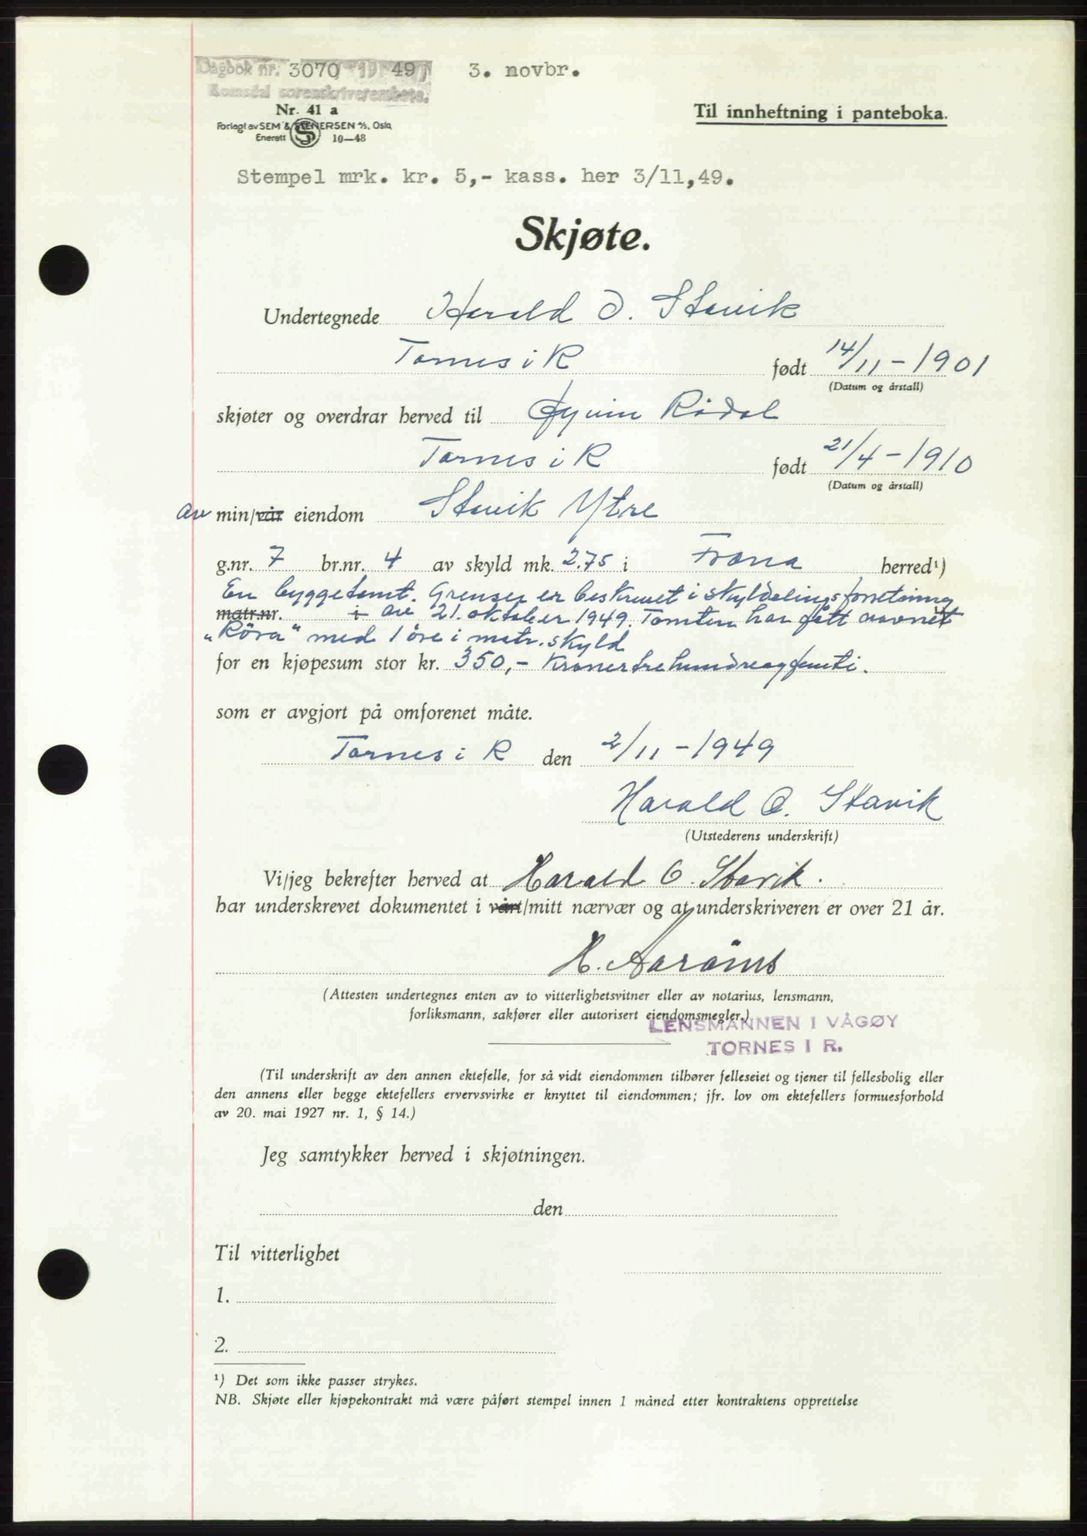 Dagbok nr. 3070 19 49 3. novbr.
Romsdal sorenskriverembete.
Nr. 41 a
Til innheftning i panteboka.
Forlagt av SEM & STENERSEN A/S, Oslo
Enerett S 10—48
Stempel mrk. kr. 5,- kass. her 3/11,49.
Skjøte.
Undertegnede Harald O. Stavik
Tornes i R født 14/11 - 1901
(Datum og årstall)
skjøter og overdrar herved til Øyvin Rödal
Tornes i R født 21/4 - 1910
(Datum og årstall)
av min/vår eiendom Stavik Ytre
g.nr. 7 br.nr. 4 av skyld mk. 2.75 i Fræna herred¹)
En byggetomt. Grenser er beskrevet i skyldelingsforretning
matr.nr. i av 21. oktober 1949. Tomten har fått navnet
"Röra" med 1 öre i matr. skyld
for en kjøpesum stor kr. 350,- Kroner trehundreogfemti.
som er avgjort på omforenet måte.
Tornes i R den 2/11 - 1949
Harald O. Stavik
(Utstederens underskrift)
Vi/jeg bekrefter herved at Harald O. Stavik.
har underskrevet dokumentet i vårt/mitt nærvær og at underskriveren er over 21 år.
H. Aaröins
(Attesten undertegnes enten av to vitterlighetsvitner eller av notarius, lensmann,
forliksmann, sakfører eller autorisert eiendomsmegler.)
LENSMANNEN I VÅGØY
TORNES I R.
(Til underskrift av den annen ektefelle, for så vidt eiendommen tilhører felleseiet og tjener til fellesbolig eller
den annens eller begge ektefellers ervervsvirke er knyttet til eiendommen; jfr. lov om ektefellers formuesforhold
av 20. mai 1927 nr. 1, § 14.)
Jeg samtykker herved i skjøtningen.
den
Til vitterlighet
1.
2.
¹) Det som ikke passer strykes.
NB. Skjøte eller kjøpekontrakt må være påført stempel innen 1 måned etter kontraktens opprettelse